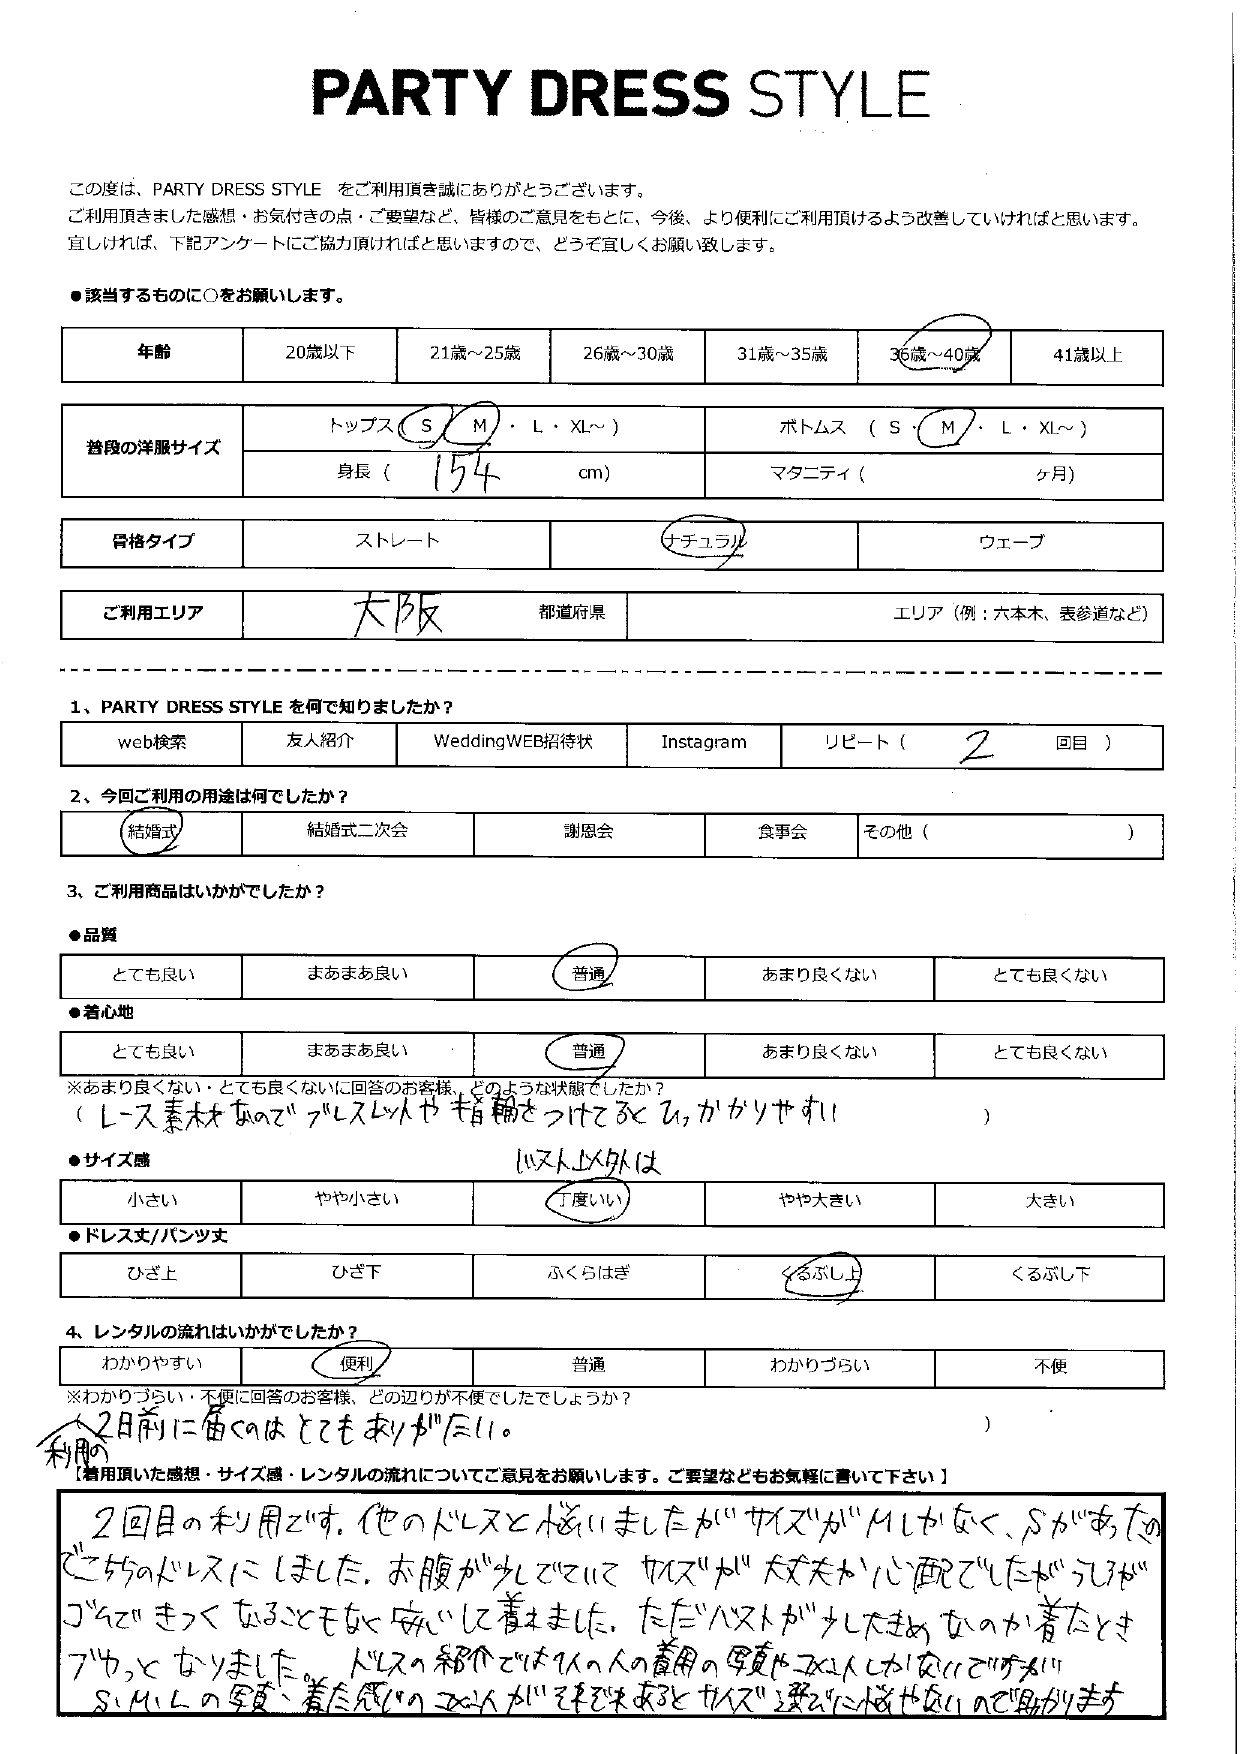 PARTY DRESS STYLE
この度は、PARTY DRESS STYLE をご利用頂き誠にありがとうございます。
ご利用頂きました感想・お気付きの点・ご要望など、皆様のご意見をもとに、今後、より便利にご利用頂けるよう改善していければと思います。
宜しければ、下記アンケートにご協力頂ければと思いますので、どうぞ宜しくお願い致します。
●該当するものに○をお願いします。
年齢 20歳以下 21歳～25歳 26歳～30歳 31歳～35歳 36歳～40歳 41歳以上
普段の洋服サイズ トップス（ S ・ M ・ L ・ XL～ ） ボトムス （ S ・ M ・ L ・ XL～ ）
身長（ 154 cm） マタニティ（ ヶ月）
骨格タイプ ストレート ナチュラル ウェーブ
ご利用エリア 大阪 都道府県 エリア（例：六本木、表参道など）
1、PARTY DRESS STYLE を何で知りましたか？
web検索 友人紹介 WeddingWEB招待状 Instagram リピート（ 2 回目 ）
2、今回ご利用の用途は何でしたか？
結婚式 結婚式二次会 謝恩会 食事会 その他（ ）
3、ご利用商品はいかがでしたか？
●品質
とても良い まあまあ良い 普通 あまり良くない とても良くない
●着心地
とても良い まあまあ良い 普通 あまり良くない とても良くない
※あまり良くない・とても良くないに回答のお客様、どのような状態でしたか？
（ レース素材なのでブレスレットや指輪をつけてるとひっかかりやすい ）
●サイズ感 バスト以外は
小さい やや小さい 丁度いい やや大きい 大きい
●ドレス丈/パンツ丈
ひざ上 ひざ下 ふくらはぎ くるぶし上 くるぶし下
4、レンタルの流れはいかがでしたか？
わかりやすい 便利 普通 わかりづらい 不便
※わかりづらい・不便に回答のお客様、どの辺りが不便でしたでしょうか？
（ 2日前に届くのはとてもありがたい。 ）
利用の
【着用頂いた感想・サイズ感・レンタルの流れについてご意見をお願いします。ご要望などもお気軽に書いて下さい 】
2回目の利用です。他のドレスと悩いましたがサイズがMしかなく、Sがあったの
でこちらのドレスにしました。お腹が少しでていてサイズが大丈夫か心配でしたがうしろが
ゴムできつくなることもなく安心して着れました。ただバストが少し大きめなのか着たとき
ブカっとなりました。ドレスの紹介では1人の人の着用の写真やコメントしかないですが
S、M、Lの写真、着た感じのコメントがそれぞれあるとサイズ選びに悩やないので助かります